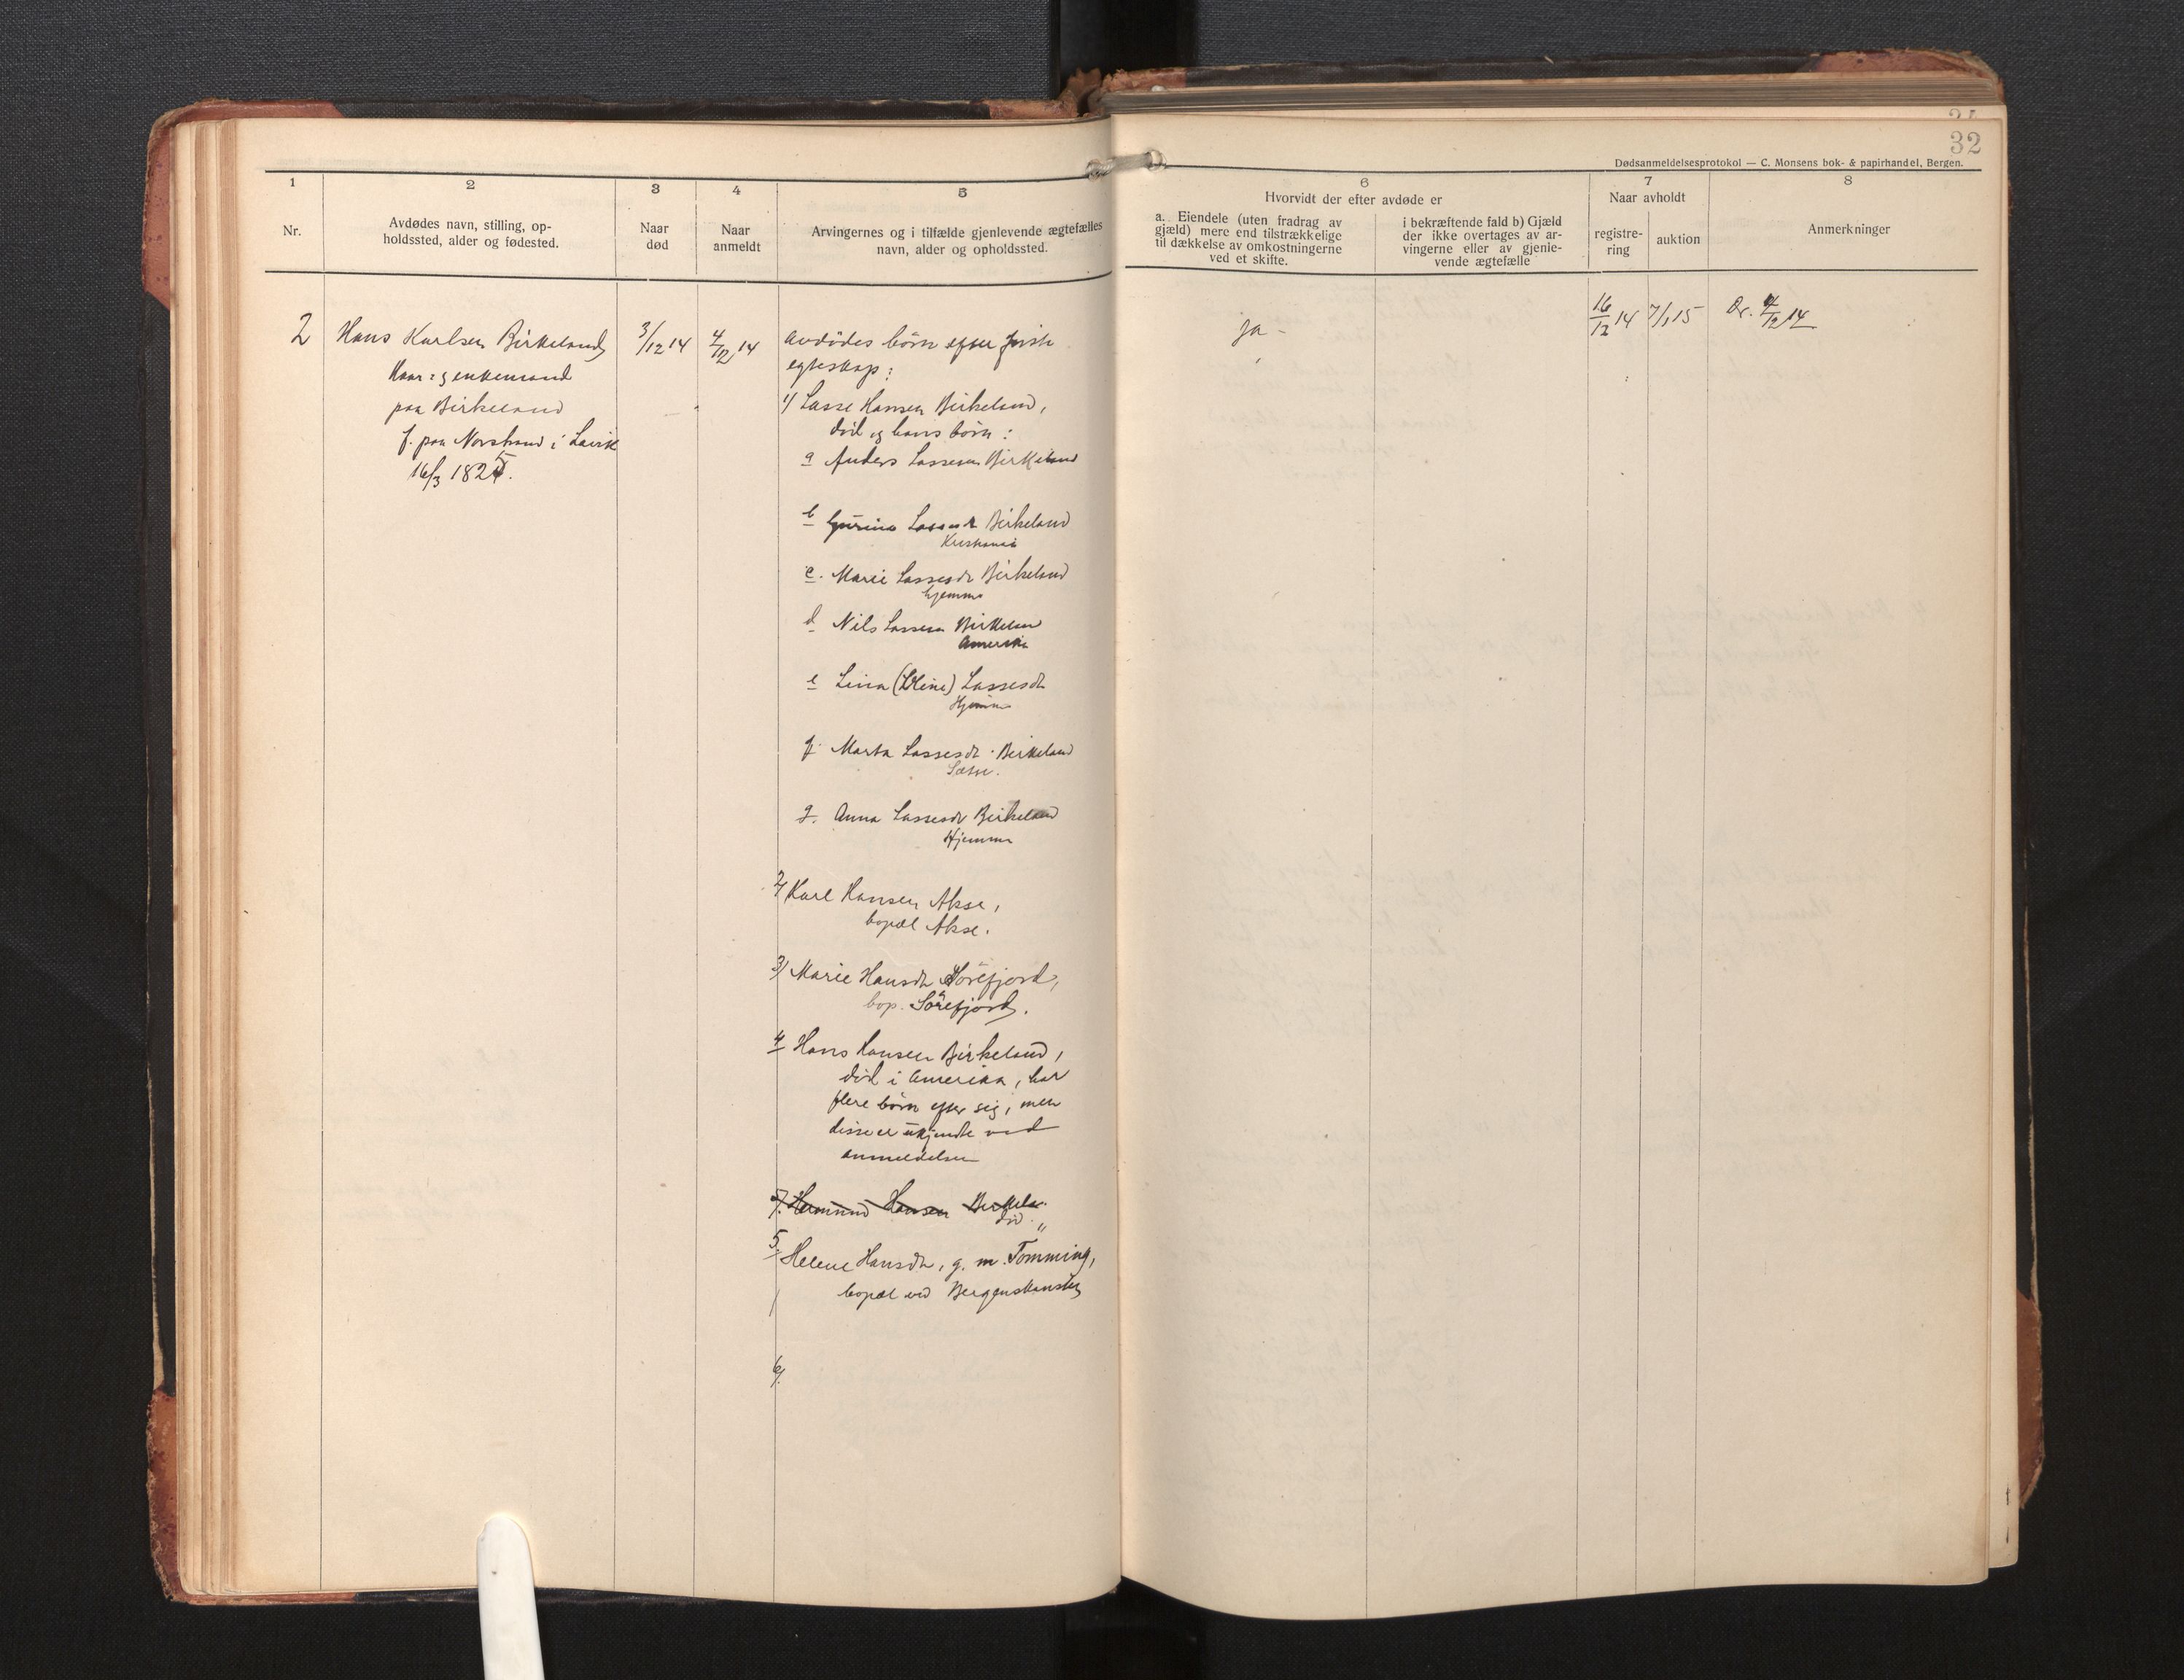 32
Dødsanmeldelsesprotokol — C. Monsens bok- & papirhandel, Bergen.
1
Nr.
2
Avdødes navn, stilling, op-
holdssted, alder og fødested.
3
Naar
død
4
Naar
anmeldt
5
Arvingernes og i tilfælde gjenlevende ægtefælles
navn, alder og opholdssted.
6
Hvorvidt der efter avdøde er
a. Eiendele (uten fradrag av
gjæld) mere end tilstrækkelige
til dækkelse av omkostningerne
ved et skifte.
i bekræftende fald b) Gjæld
der ikke overtages av ar-
vingerne eller av gjenle-
vende ægtefælle
7
Naar avholdt
registre-
ring
auktion
8
Anmerkninger
2
Hans Karlsen Birkeland
Kaar- g enkemand
paa Birkeland
f. paa Norstrand i Lavik
16/3 1825.
3/12 14
4/12 14
avdødes börn efter første
egteskap:
1/ Lasse Hansen Birkeland,
död og hans börn:
a Anders Lassesen Birkeland
b Lassesdt Birkeland
Kristiania
c. Marie Lassesdt Birkeland
hjemme
d Nils Lassesen Birkeland
Amerika
e Lina (Oline) Lassesdt
Hjemme
f. Marta Lassesdt Birkeland
g. Anna Lassesdt Birkeland
Hjemme
2/ Karl Hansen Akse,
bopæl Akse.
3/ Marie Hansdt Sörefjord,
bop. Sörefjord.
4 Hans Hansen Birkeland,
död i Amerika, har
flere börn efter sig, men
disse er ukjendte ved
anmeldelsen
Hermund Hansen Birkela.
död "
5. Helene Hansdt, g. m. Tomming,
bopæl ved Bergenskansten
6/.
ja -
16/12 14
7/1 15
Dr. 4/12 14